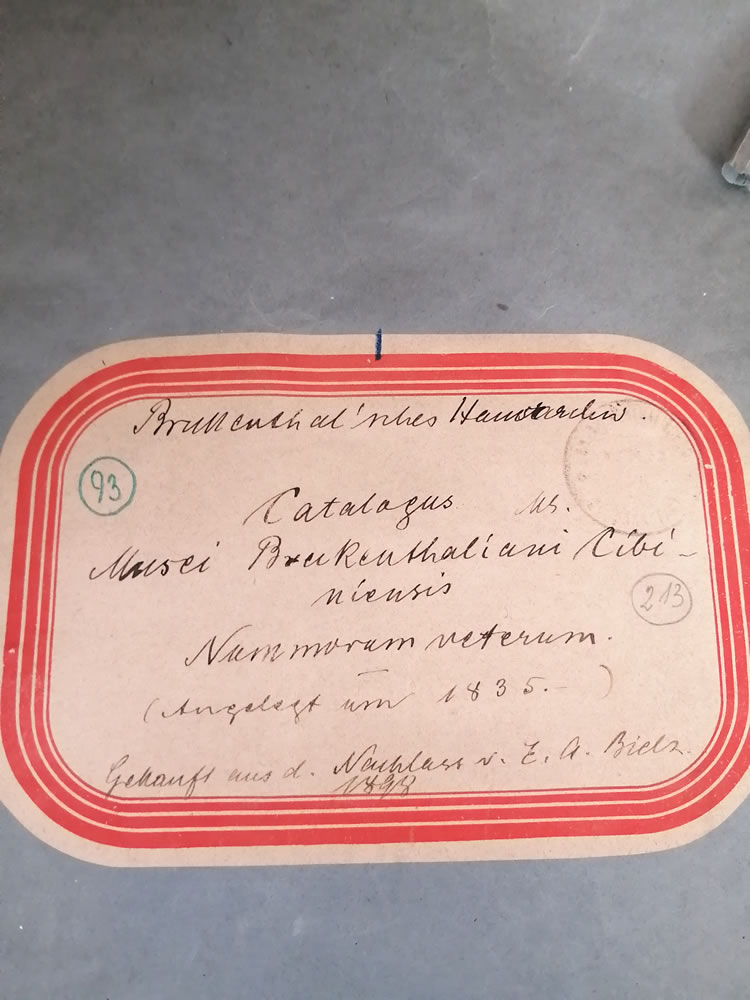 Brukenthal'sches Hausarchiv.
93
Catalogus Ms.
Musei Brukenthaliani Cibi-
niensis
213
Nummorum veterum.
(Angelegt um 1835.-)
Gekauft aus d. Nachlass v. E. A. Bielz.
1898